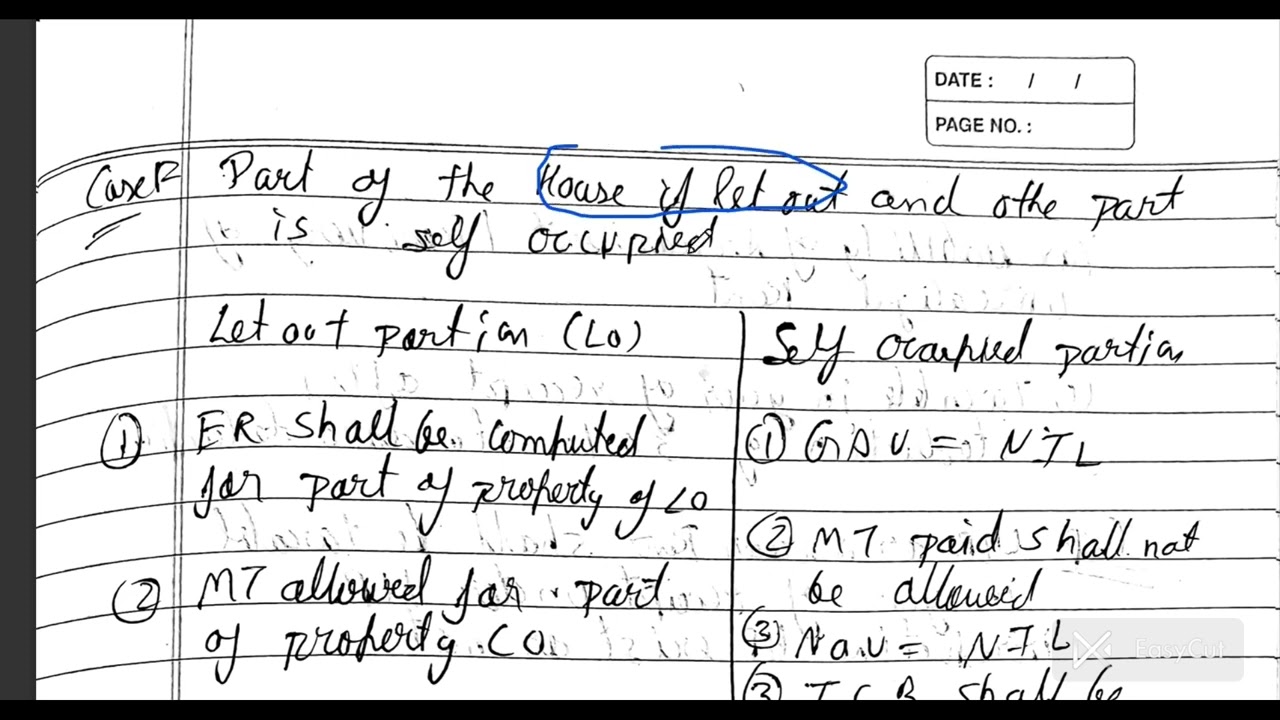 DATE : / /
PAGE NO. :
Case F Part of the House if let out and othe part
is self occupied.
Let out portion (LO)
Self Ocaupied portion
① ER shall be computed
for part of property of LO
① GAV = NIL
② MT paid shall not
be allowed
② MT allowed for part
of property LO
③ NAV = NIL
shall be
EasyCut